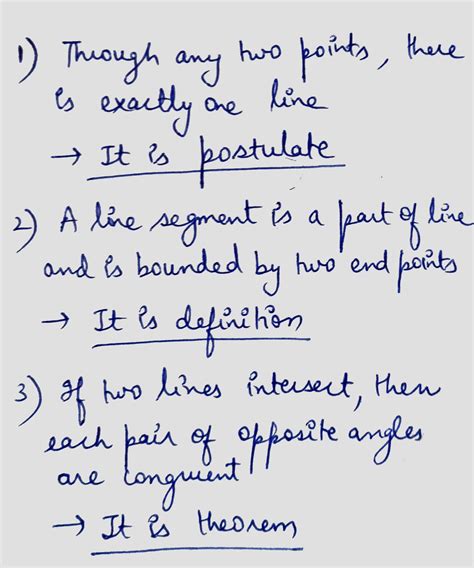 1) Through any two points, there
is exactly one line
→ It is postulate
2) A line segment is a part of line
and is bounded by two end points
→ It is definition
3) If two lines intersect, then
each pair of opposite angles
are congruent
→ It is theorem